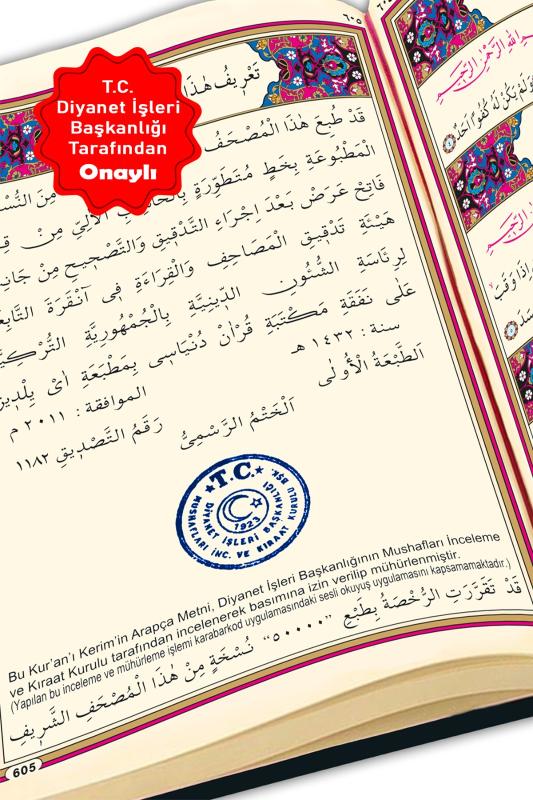 T.C.
Diyanet İşleri
Başkanlığı
Tarafından
Onaylı
٦٠٥
تَعْرِيفُ هٰذَا
قَدْ طُبِعَ هٰذَا الْمُصْحَفُ
الْمَطْبُوعَةِ بِخَطٍّ مُتَطَوِّرَةٍ مِنَ النُّسْ
فَاتِحْ عَرَضَ بَعْدَ اِجْرَاءِ التَّدْقِيقِ وَالتَّصْحِيحِ مِنْ جَانِبِ
هَيْئَةِ تَدْقِيقِ الْمَصَاحِفِ وَالْقِرَاءَةِ فِى آنْقَرَةَ التَّابِعَ
لِرِئَاسَةِ الشُّئُونِ الدِّينِيَّةِ بِالْجُمْهُورِيَّةِ التُّرْكِيَّ
عَلَى نَفَقَةِ مَكْتَبَةِ قُرْاٰنْ دُنْيَاسِى بِمَطْبَعَةِ اٰىْ يِلْدِيز
سنة : ١٤٣٢ هـ
الموافقة : ٢٠١١ م
اَلطَّبْعَةُ الْاُولٰى
رَقَمُ التَّصْدِيقِ ١١٨٢
اَلْخَتْمُ الرَّسْمِىُّ
★ T.C. ★
DİYANET İŞLERİ BAŞKANLIĞI
MUSHAFLARI İNC. VE KIRAAT KURULU BŞK.
1923
Bu Kur'an'ı Kerim'in Arapça Metni, Diyanet İşleri Başkanlığının Mushafları İnceleme
ve Kıraat Kurulu tarafından incelenerek basımına izin verilip mühürlenmiştir.
(Yapılan bu inceleme ve mühürleme işlemi karabarkod uygulamasındaki sesli okuyuş uygulamasını kapsamamaktadır.)
قَدْ تَقَرَّرَتِ الرُّخْصَةُ بِطَبْعِ "٥٠٠٠٠" نُسْخَةٍ مِنْ هٰذَا الْمُصْحَفِ الشَّرِيفِ
605
اللهِ الرَّحْمٰنِ الرَّحِيمِ
وَلَمْ يَكُنْ لَهُ كُفُوًا اَحَدٌ
الرَّحِيمِ
اِذَا وَقَبَ